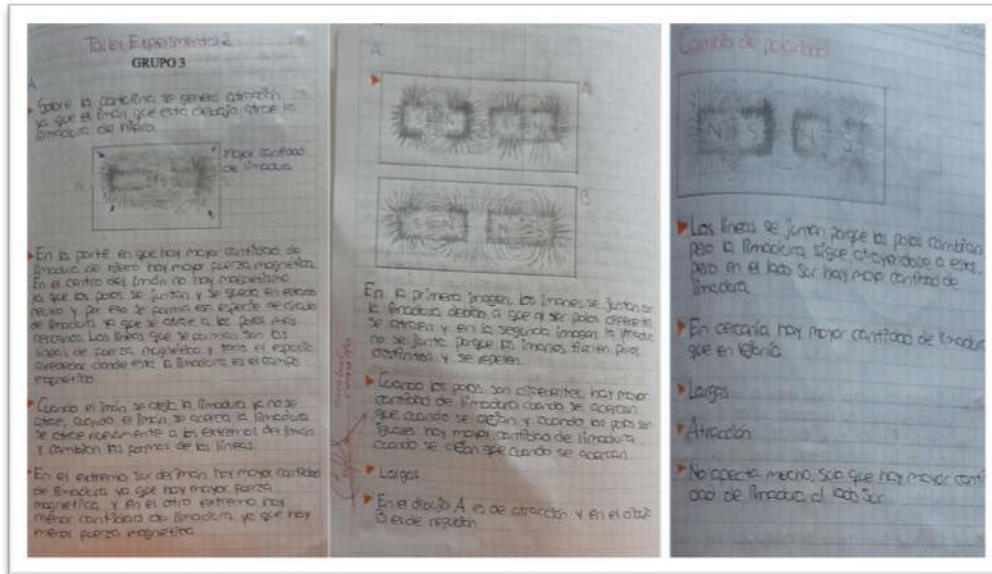 Taller Experimental 2
GRUPO 3
A
Sobre la cartulina se genero atracción
ya que el imán que está debajo atrae la
limadura de hierro.
Mayor cantidad
de limadura
N
En la parte en que hay mayor cantidad de
limadura de hierro hay mayor fuerza magnética.
En el centro del imán no hay magnetismo
ya que los polos se juntan y se queda en estado
neutro y por eso se forma
de limadura ya que se atrae a los polos más
cercanos. Las líneas que se forman son las
líneas de fuerza magnética y todo el espacio
alrededor donde está la limadura es el campo
magnético.
Cuando el imán se aleja la limadura ya no se
atrae, cuando el imán se acerca la limadura
se atrae nuevamente a los extremos del imán
y cambian las formas de las líneas.
En el extremo sur del imán hay mayor cantidad
de limadura ya que hay mayor fuerza
magnética, y en el otro extremo hay
menor cantidad de limadura ya que hay
menor fuerza magnética.
A
A
B
En la primera imagen, los imanes se juntan
la limadura debido a que al ser polos diferentes
se atraen y en la segunda imagen la
no se junta porque los imanes tienen polos
y se repelen.
Cuando los polos son diferentes, hay mayor
cantidad de limadura cuando se acercan
que cuando se alejan y cuando los polos son
iguales hay mayor cantidad de limadura
cuando se alejan que cuando se acercan.
Largas
En el dibujo A es de atracción y en el dibujo
B es de repulsión
Cambio de polaridad
N S N S
Las líneas se juntan porque los polos cambian
pero la limadura sigue atrayéndose a estos,
pero en el lado sur hay mayor cantidad de
limadura.
En cercanía hay mayor cantidad de limadura
que en lejanía.
Largas
Atracción
No afecta mucho, solo que hay mayor canti
dad de limadura al lado sur.